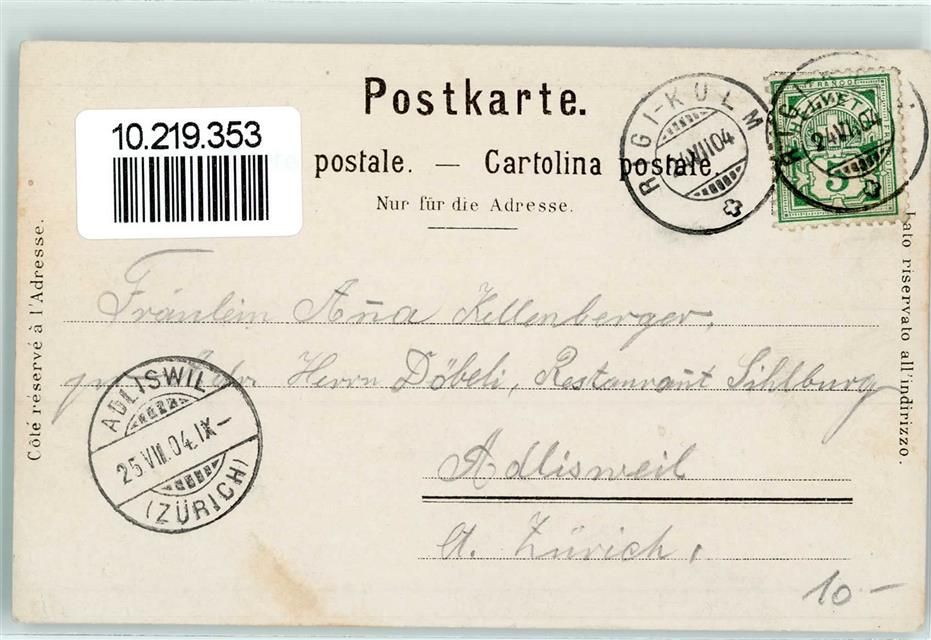 Postkarte.
10.219.353
postale. — Cartolina postale.
Nur für die Adresse.
RIGI-KULM
24.VIII.04
RIGI
24.VIII.04
FRANCO
HELVETIA
5
Côté réservé à l'Adresse.
Lato riservato all'indirizzo.
Fräulein Anna Kellenberger,
Adr. Herrn Döbeli, Restaurant Sihlburg
Adlisweil
Ct. Zürich.
ADLISWIL
25.VIII.04.IX–
(ZÜRICH)
10 –